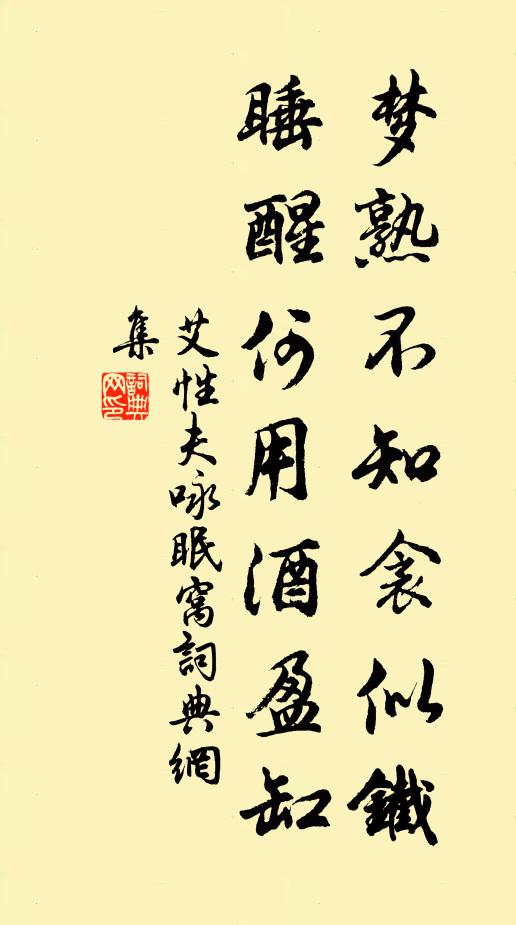 梦熟不知衾似鐵
睡醒何用酒盈缸
艾性夫咏眠窩詞典網
集
詞典网印